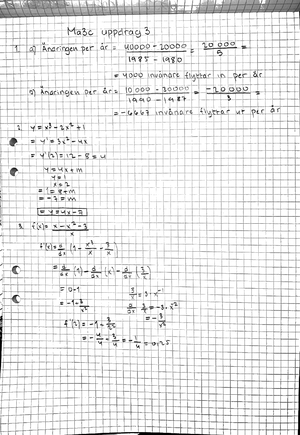 Ma3c uppdrag 3
1. a) Ändringen per år = 40000 - 20000 / 1985 - 1980 = 20 000 / 5 =
= 4000 invånare flyttar in per år
b) Ändringen per år = 10 000 - 30000 / 1990 - 1987 = -20000 / 3 =
= -6667 invånare flyttar ut per år
2. y = x³ - 2x² + 1
= y' = 3x² - 4x
= y'(2) = 12 - 8 = 4
y = 4x + m
y = 1
x = 2
= 1 = 8 + m
= -7 = m
= y = 4x - 7
3. f(x) = x - x² - 3 / x
f'(x) = d/dx (1 - x² / x - 3/x)
= d/dx (1) - d/dx (x) - d/dx (3/x)
= 0 - 1
3/x = 3 · x⁻¹
= -1 - 3/x²
d/dx 3/x = -3 · x⁻²
= -3/x²
f'(2) = -1 - 3/2²
= -4/4 - 3/4 = -1/4 = 0,25